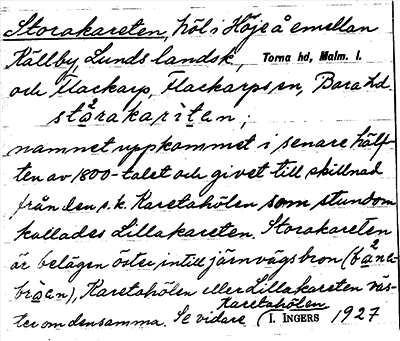 Storakareten, höl i Höje å emellan
Källby, Lunds landsk., Torna hd, Malm. l.
och Flackarp, Flackarps sn, Bara hd.
stårakariten;
namnet uppkommet i senare hälf-
ten av 1800-talet och givet till skillnad
från den s.k. Karetahölen som stundom
kallades Lillakareten. Storakareten
är belägen öster intill järnvägsbron (båna-
broen), Karetahölen eller Lillakareten väs-
ter om densamma. Se vidare Karetahölen
I. INGERS 1927